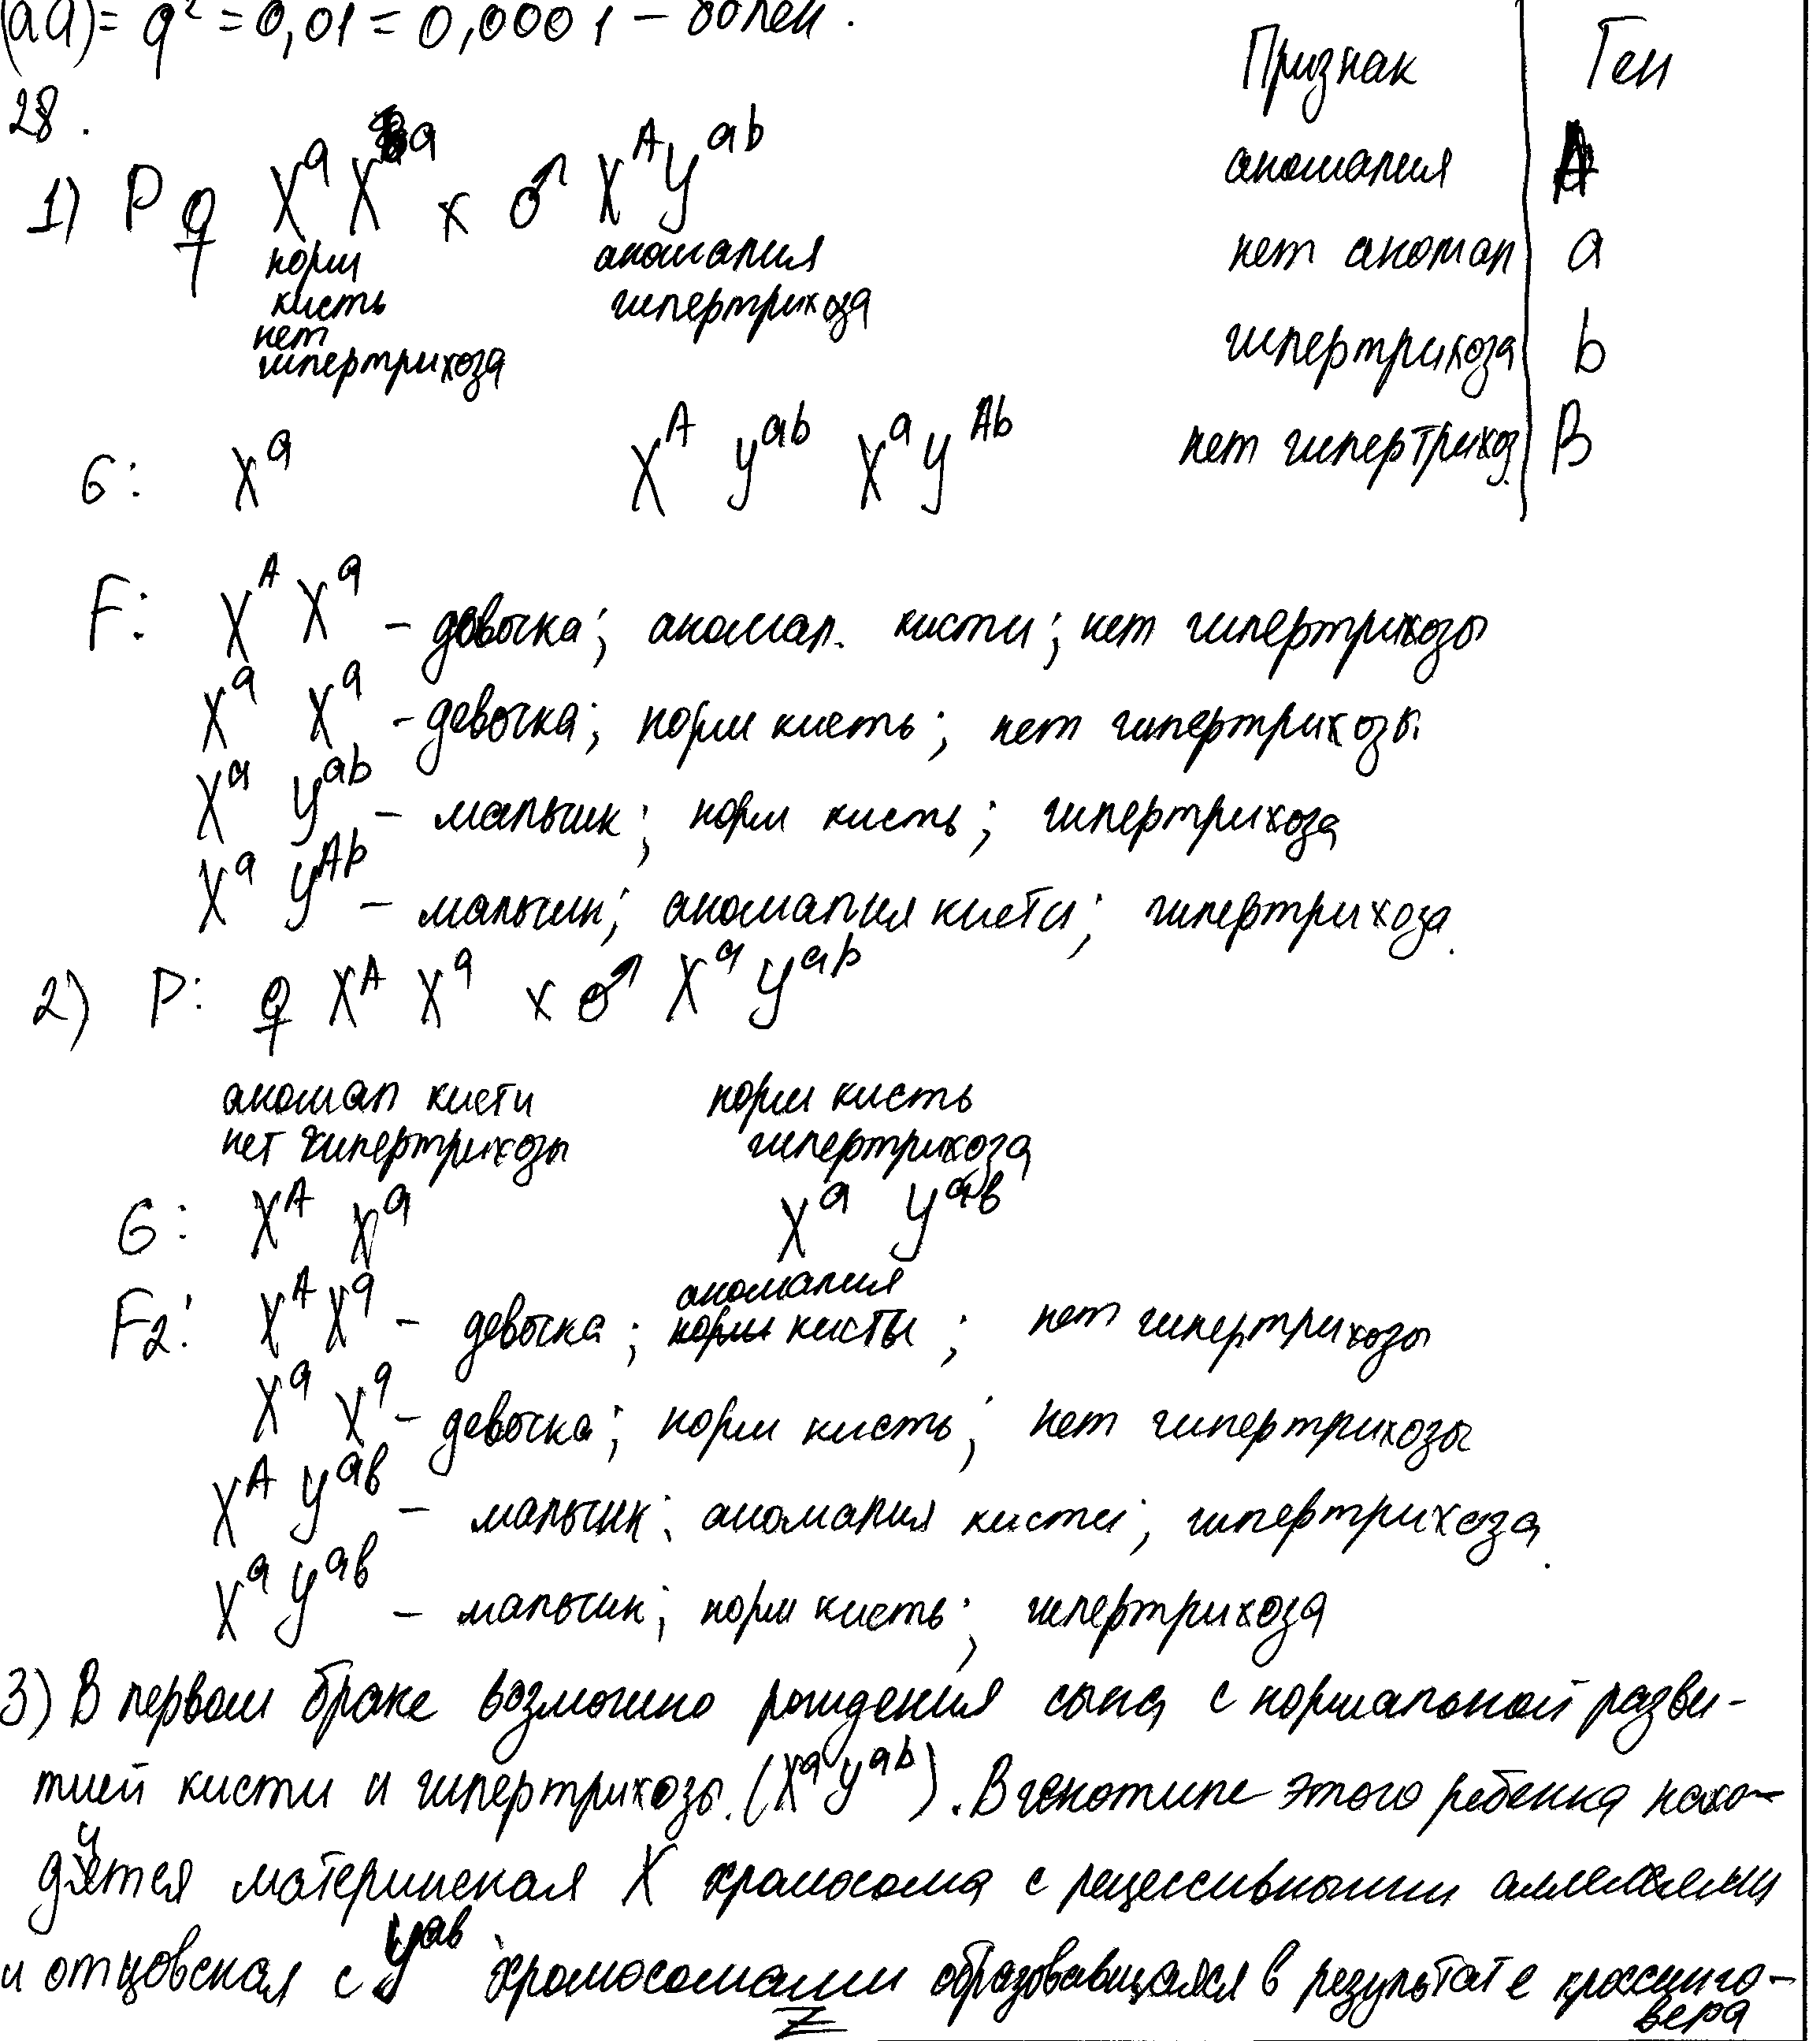 (aa) = q² = 0,01 = 0,0001 – болен.
28.
Признак Ген
аномалия A
нет аномал a
гипертрихоза b
нет гипертрихоз. B
1) P ♀ XᵃXᵃ x ♂ XᴬYᵃᵇ
норм аномалия
кисть гипертрихоза
нет
гипертрихоза
G: Xᵃ Xᴬ Yᵃᵇ Xᵃ Yᴬᵇ
F: Xᴬ Xᵃ – девочка; аномал. кисти; нет гипертрихозы
Xᵃ Xᵃ – девочка; норм кисть; нет гипертрихозы.
Xᵃ Yᵃᵇ – мальчик; норм кисть; гипертрихоза
Xᵃ Yᴬᵇ – мальчик; аномалия кисти; гипертрихоза.
2) P: ♀ Xᴬ Xᵃ x ♂ Xᵃ Yᵃᵇ
аномал кисти норм кисть
нет гипертрихозы гипертрихоза
G: Xᴬ Xᵃ Xᵃ Yᵃᵇ
F2: XᴬXᵃ – девочка; аномалия норм кисты; нет гипертрихозы
Xᵃ Xᵃ – девочка; норм кисть; нет гипертрихозы
Xᴬ Yᵃᵇ – мальчик; аномалия кисти; гипертрихоза.
Xᵃ Yᵃᵇ – мальчик; норм кисть; гипертрихоза
3) В первом браке возможно рождения сына с нормальной разви-
тией кисти и гипертрихозы. (XᵃYᵃᵇ). В генотипе этого ребенка нахо-
дутся материнская X хромосома с рецессивными аллелями
и отцовская с Yᵃᵇ хромосомами образовавщаяся в результате кроссинго-
вера